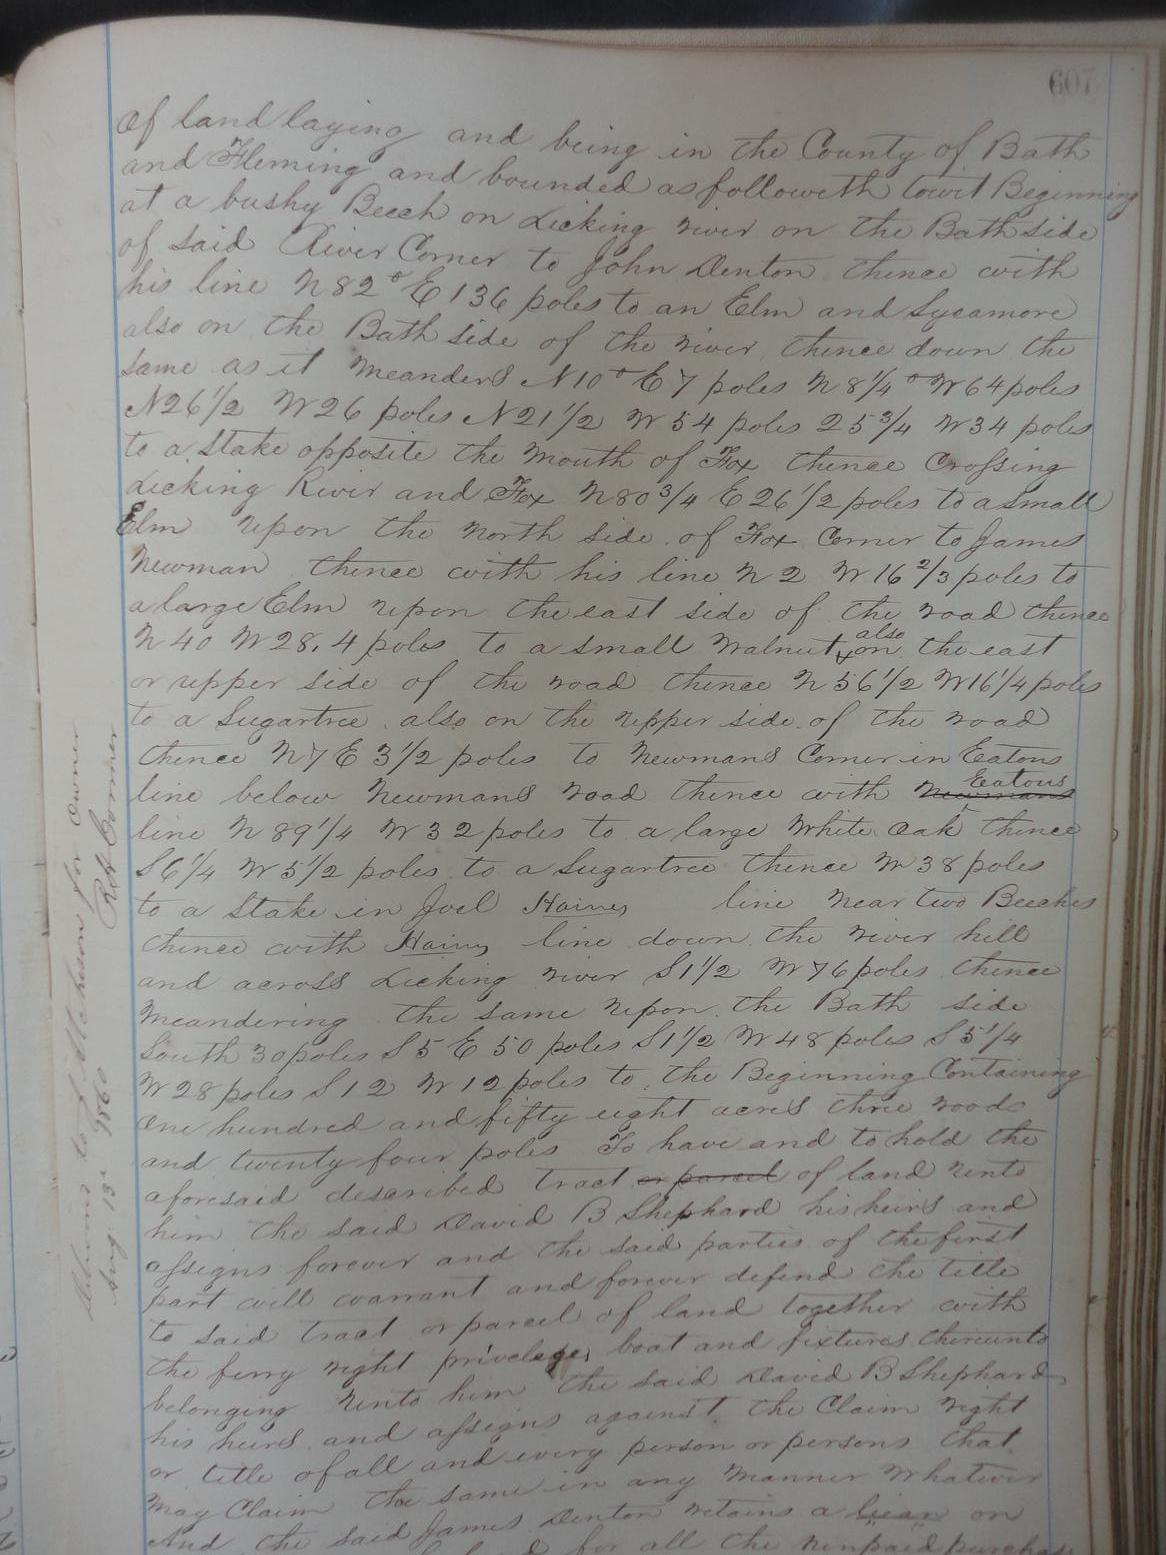 607
Of land laying and being in the County of Bath
and Fleming and bounded as followeth towit Beginning
at a bushy Beech on Licking river on the Bath side
of said River Corner to John Denton thence with
his line N 82° E 136 poles to an Elm and Sycamore
also on the Bath side of the river thence down the
same as it meanders N 10° E 7 poles N 8 1/4° W 64 poles
N 26 1/2 W 26 poles N 21 1/2 W 54 poles 25 3/4 W 34 poles
to a Stake opposite the mouth of Fox thence Crossing
Licking River and Fox N 80 3/4 E 26 1/2 poles to a small
Elm upon the north side of Fox Corner to James
Newman thence with his line N 2 W 16 2/3 poles to
a large Elm upon the east side of the road thence
N 40 W 28.4 poles to a small Walnut also on the east
or upper side of the road thence N 56 1/2 W 16 1/4 poles
to a Sugartree also on the upper side of the road
thence N 7 E 3 1/2 poles to Newmans Corner in Eatons
line below Newmans road thence with Newmans Eatons
line N 89 1/4 W 32 poles to a large White Oak thence
S 6 1/4 W 5 1/2 poles to a Sugartree thence W 38 poles
to a Stake in Joel Haines line near two Beeches
thence with Haines line down the river hill
and across Licking river S 1 1/2 W 76 poles thence
Meandering the same upon the Bath side
South 30 poles S 5 E 50 poles S 1 1/2 W 48 poles S 5 1/4
W 28 poles S 12 W 12 poles to the Beginning Containing
One hundred and fifty eight acres three roods
and twenty four poles To have and to hold the
aforesaid described tract or parcel of land unto
him the said David B Shephard his heirs and
assigns forever and the said parties of the first
part will warrant and forever defend the title
to said tract or parcel of land together with
the ferry right priveleges boat and fixtures thereunto
belonging unto him the said David B Shephard
his heirs and assigns against the Claim right
or title of all and every person or persons that
may Claim the same in any manner Whatever
And the said James Denton retains a lien on
for all the unpaid purchase
to J for owner
Aug 13 1860